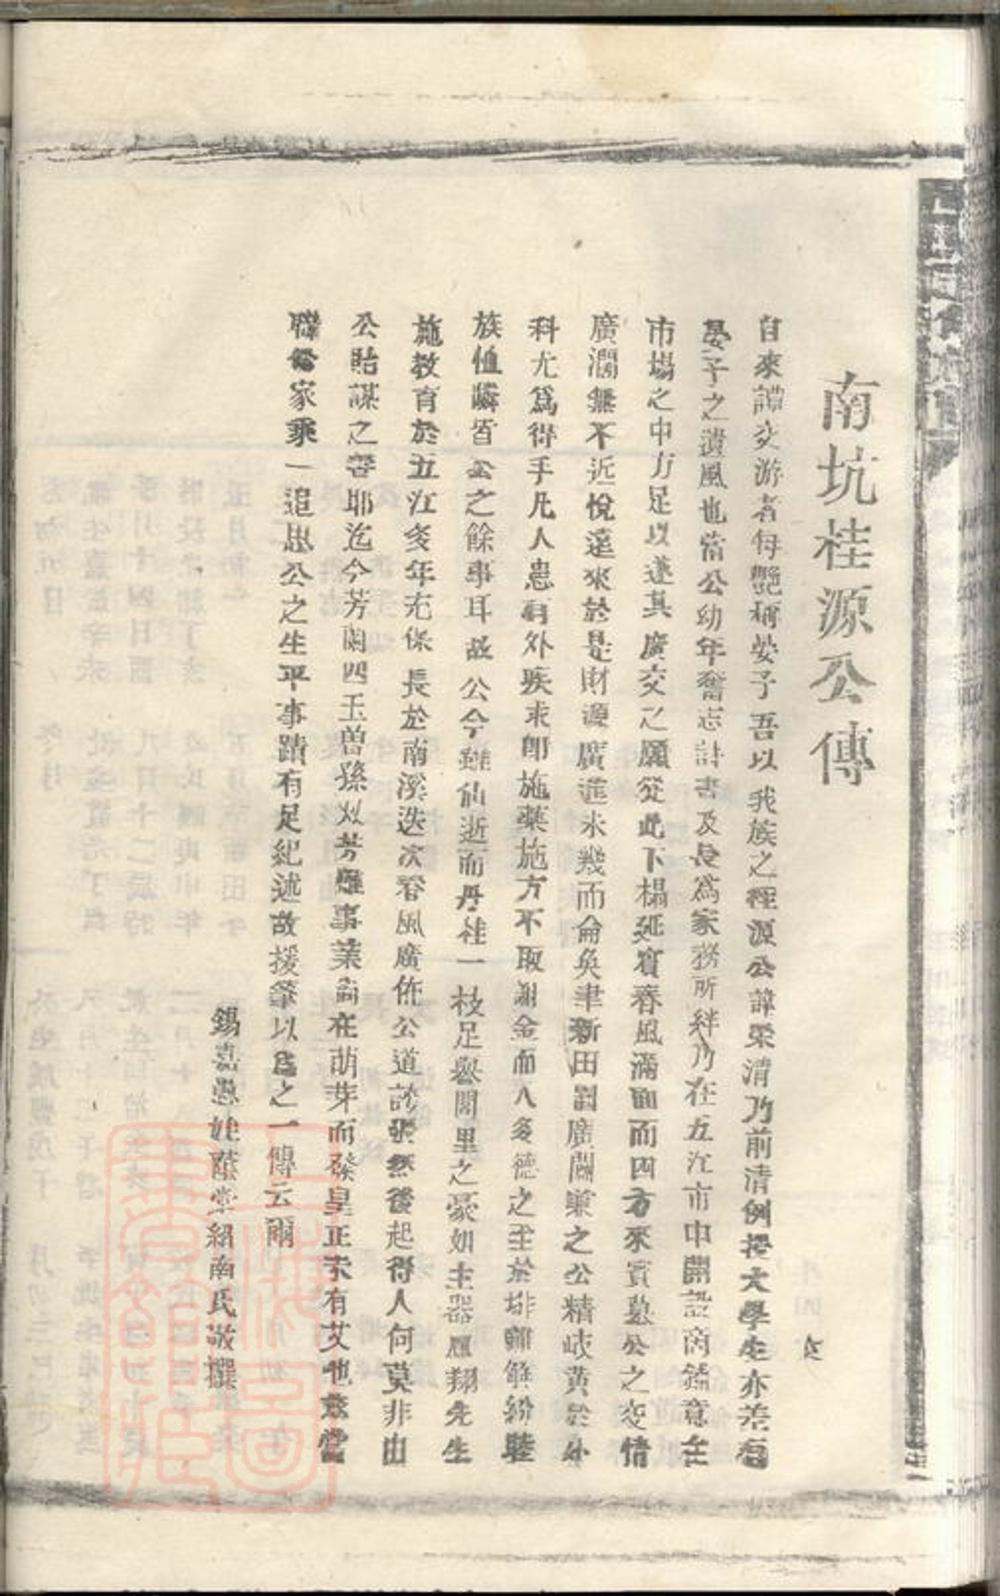 南坑桂源公傳
自來譚交游者每艷稱晏子吾以我族之桂源公諱榮清乃前清例授大學生亦差有
晏子之遺風也當公幼年奮志詩書及長爲家務所絆乃在五江市中開設商鋪意在
市場之中方足以遂其廣交之願從此下榻延賓春風滿面而四方來賓慕公之交情
廣濶無不近悅遠來於是財源廣進未幾而侖奐聿新田園廣闢兼之公精岐黃於外
科尤爲得手凡人患有外疾求即施藥施方不取謝金而人多德之至於排難解紛睦
族恤鄰皆公之餘事耳故公今雖仙逝而丹桂一枝足譽閭里之豪如主器鳳翔先生
施教育於五江多年充保長於南溪迭次春風廣佈公道訟張然後起得人何莫非由
公貽謀之善耶迄今芳蘭四玉曾孫双芳雖事業尚在萌芽而發皇正未有艾也茲當
聯修家乘一追思公之生平事蹟有足紀述故援筆以爲之一傳云爾
錫嘉愚姪蔭棠紹南氏敬撰